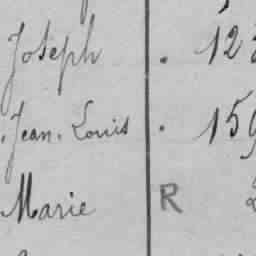 Joseph . 12
Jean. Louis . 159
Marie R